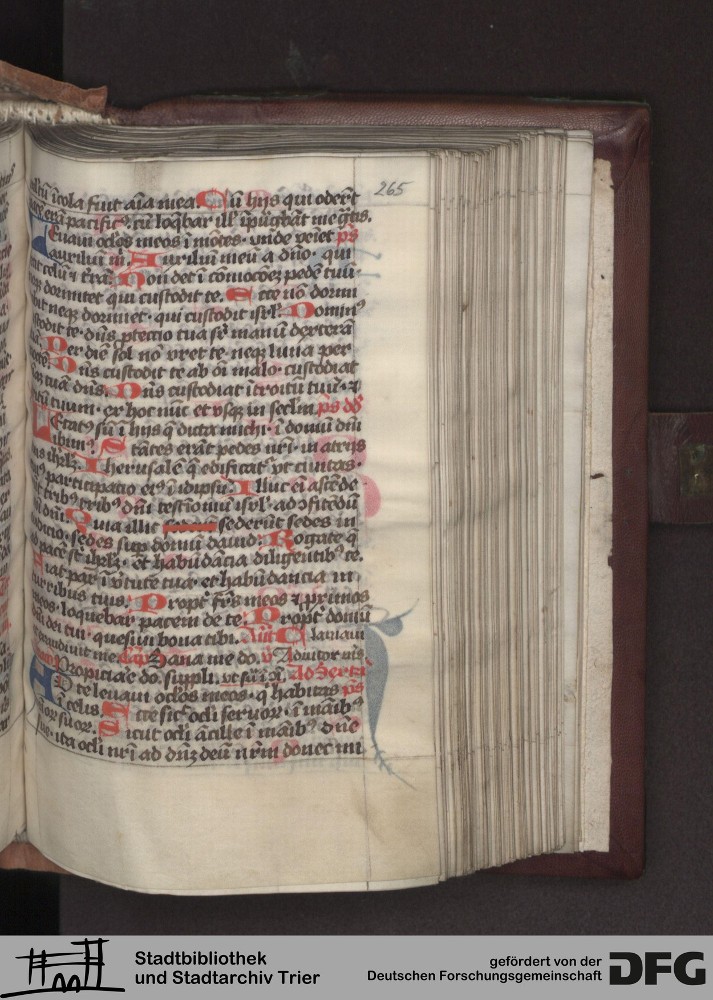 265
multū īcola fuit aīa mea. Cū hijs qui oderūt
pacē erā pacific⁹. cū loq̄bar ill' īpugbāt me gͣtis.
Leuaui oc̄los meos ī mōtes. vnde veīet p̄s
auxiliū m̄. Auxiliū meū a dn̄o. qui
fecit celū ⁊ tr̄ā. Non det ī cōmocōeʒ pedē tuū.
neq; dormitet qui custodit te. Ecce nō dorm
itabit neq; dormiet. qui custodit isrl'. Domin⁹
custodit te. dn̄s ptectio tua sr̄ manū dexterā
tuā. Per diē sol nō vret te. neq; luna per
noctē. Dn̄s custodit te ab oī malo. custodiat
aīaʒ tuā dn̄s. Dn̄s custodiat ītroitū tuū. ⁊
exitū tuum. ex hoc nūc et vsq; in seclm̄. p̄s dd̄
Letat⁹ sū ī hijs q̄ dicta s̄t michi. ī domū dn̄i
ibim⁹. Stātes erāt pedes nr̄i. in atrijs
tuis ihrl̄m. Iherusalē q̄ edificat' vt ciuitas.
cui⁹ participatio ei⁹ ī idipsū. Illuc ei ascēde
rūt trib⁹ trib⁹ dn̄i testiōniū isrl'. ad ɔfitēdū
nōī dn̄i. Quia illic sederūt sedes in
iudicio. sedes sup domū dauid. Rogate q̄
ad pacē st̄ ihrl̄m. et habūdācia diligentib⁹ te.
Fiat pax ī v̄tute tua. et habūdancia in
turribus tuis. Propt' fr̄s meos ⁊ primos
meos. loquebar pacem de te. Propt' domū
dn̄i dei tui. quesiui bona tibi. Añ Clamaui
et exaudiuit me. Cap̄ Sana me do. v̄ Adiutor m̄s.
Propicia'e do. suppli. vt s̄ ī dī. Ad Sextā
AD te leuaui oc̄los meos. q̄ habitas p̄s
ī celis. Ecce sic' ocl̄i seruoꝝ. ī māib⁹
dn̄oꝝ suoꝝ. Sicut ocl̄i ācille ī māib⁹ dn̄e
sue. ita ocl̄i nr̄i ad dn̄ʒ deū nr̄m donec mi
Stadtbibliothek
und Stadtarchiv Trier
gefördert von der
Deutschen Forschungsgemeinschaft
DFG